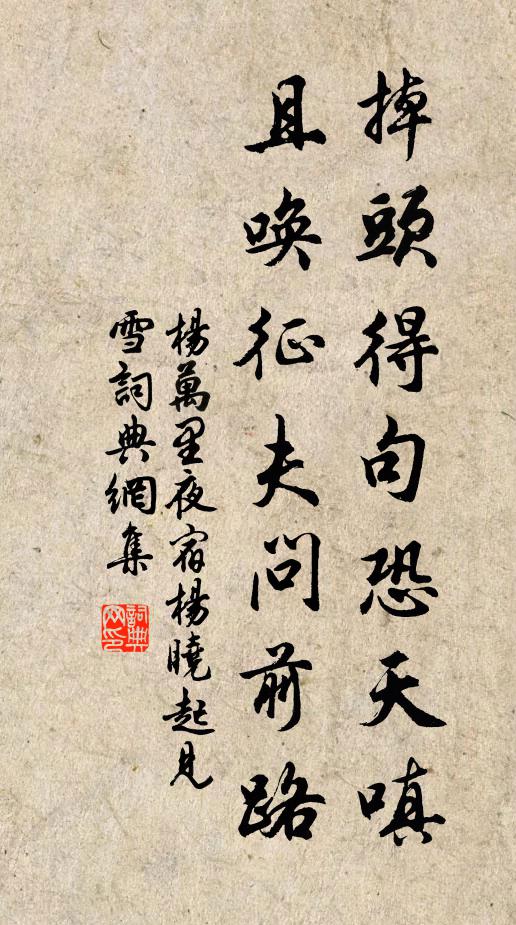 掉頭得句恐天嗔
且喚征夫問前路
楊萬里夜宿楊曉起見
雪詞典網集
詞典
网印